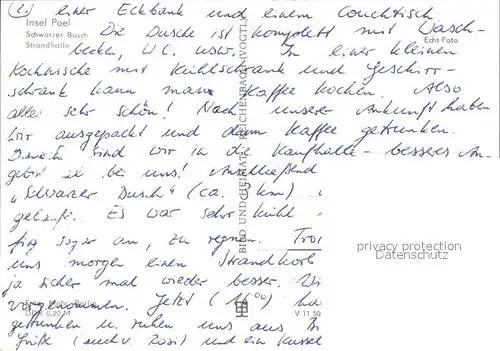 (2.) einer Eckbank und einem Couchtisch
Insel Poel
Schwarzer Busch
Strandhalle
Die Dusche ist komplett mit Wasch-
Echt Foto
becken, WC usw. In einer kleinen
Kochnische mit Kühlschrank und Geschirr-
schrank kann man Kaffee kochen. Also
alles sehr schön! Nach unserer Ankunft haben
wir ausgepackt und dann Kaffee getrunken.
Danach sind wir in die Kaufhalle - besseres An-
gebot als bei uns! Anschließend
"Schwarzer Busch" (ca. 3 km)
gelaufen. Es war sehr kühl
fing sogar an, zu regnen. Trotz
privacy protection
Datenschutz
uns morgen einen Strandkorb
ja sicher mal wieder besser. Wi
vorgenommen. Jetzt (16⁰⁰) ha
DDR 0,20 M
V 11 50
getrunken u. ruhen uns aus.
Grüße (auch v. Rosi) und ein Küssel
BILD UND HEIMAT REICHENBACH (VOGTL)